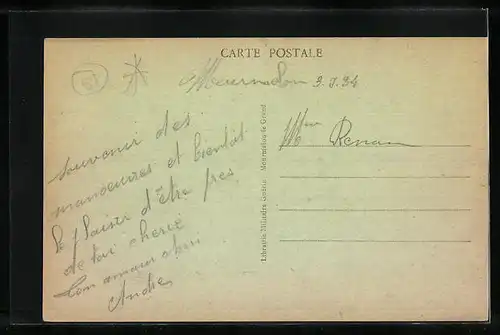 CARTE POSTALE
Mourmelon 3.9.34
Mme Renau
souvenir des
manoeuvres et bientôt
le plaisir d'être près
de toi chérie
Ton amour chéri
André
Librairie Militaire Guérin Mourmelon-le-Grand